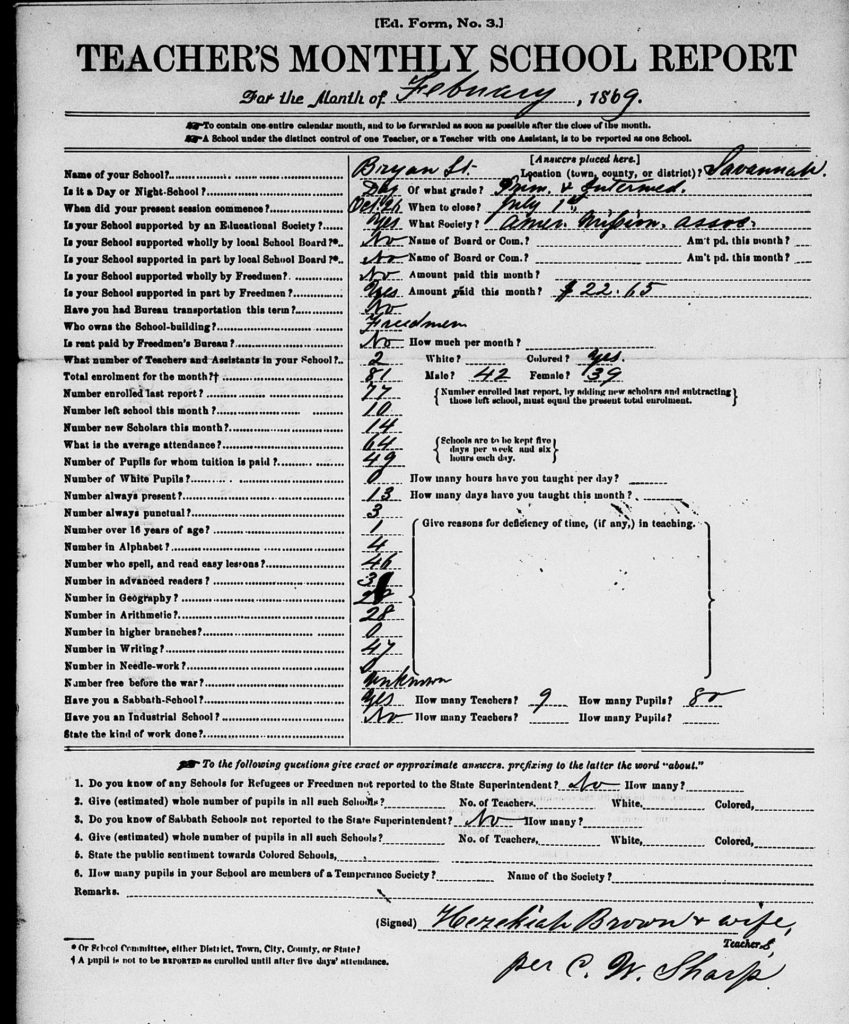 [Ed. Form, No. 3.]
TEACHER'S MONTHLY SCHOOL REPORT
For the Month of February, 1869.
To contain one entire calendar month, and to be forwarded as soon as possible after the close of the month.
A School under the distinct control of one Teacher, or a Teacher with one Assistant, is to be reported as one School.
[Answers placed here.]
Name of your School? Bryan St. Location (town, county, or district)? Savannah
Is it a Day or Night-School? Day Of what grade? Prim. & Intermed.
When did your present session commence? Oct. 26 When to close? July 1st
Is your School supported by an Educational Society? Yes What Society? Amer. Mission. Assoc.
Is your School supported wholly by local School Board?* No Name of Board or Com.? Am't pd. this month?
Is your School supported in part by local School Board?* No Name of Board or Com.? Am't pd. this month?
Is your School supported wholly by Freedmen? No Amount paid this month?
Is your School supported in part by Freedmen? Yes Amount paid this month? $22.65
Have you had Bureau transportation this term? No
Who owns the School-building? Freedmen
Is rent paid by Freedmen's Bureau? No How much per month?
What number of Teachers and Assistants in your School? 2 White? Colored? Yes.
Total enrolment for the month?† 81 Male? 42 Female? 39
Number enrolled last report? 77 {Number enrolled last report, by adding new scholars and subtracting
those left school, must equal the present total enrolment.}
Number left school this month? 10
Number new Scholars this month? 14
What is the average attendance? 64 {Schools are to be kept five
days per week and six
hours each day.}
Number of Pupils for whom tuition is paid? 49
Number of White Pupils? 0 How many hours have you taught per day?
Number always present? 13 How many days have you taught this month?
Number always punctual? 3
Number over 16 years of age? 1 Give reasons for deficiency of time, (if any,) in teaching.
Number in Alphabet? 4
Number who spell, and read easy lessons? 46
Number in advanced readers?
Number in Geography?
Number in Arithmetic? 28
Number in higher branches? 0
Number in Writing? 47
Number in Needle-work? 0
Number free before the war? Unknown
Have you a Sabbath-School? Yes How many Teachers? 9 How many Pupils? 80
Have you an Industrial School? No How many Teachers? How many Pupils?
State the kind of work done?
To the following questions give exact or approximate answers, prefixing to the latter the word "about."
1. Do you know of any Schools for Refugees or Freedmen not reported to the State Superintendent? No How many?
2. Give (estimated) whole number of pupils in all such Schools? No. of Teachers, White, Colored,
3. Do you know of Sabbath Schools not reported to the State Superintendent? No How many?
4. Give (estimated) whole number of pupils in all such Schools? No. of Teachers, White, Colored,
5. State the public sentiment towards Colored Schools,
6. How many pupils in your School are members of a Temperance Society? Name of the Society?
Remarks.
(Signed) Hezekiah Brown & wife,
Teachers,
per C. W. Sharp.
* Or School Committee, either District, Town, City, County, or State?
† A pupil is not to be REPORTED as enrolled until after five days' attendance.